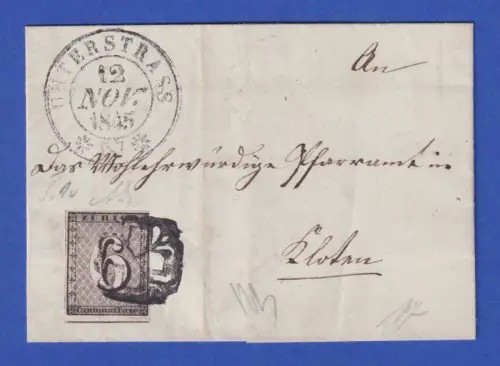 UNTERSTRASS
12
NOV.
1845
An
Das Wohlehrwürdige Pfarramt in
Kloten
ZÜRICH
6